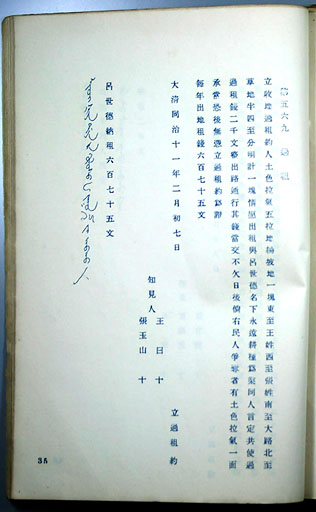 第五六九
立地過租約人土色拉氣五拉地坡地一塊東至王姓西至張姓南至大路北至
草地牛四至分明計一塊情愿出租與呂世德名下永遠耕種為至同人言定共使過
過租錢二千文整出路通行其錢當交不欠日後倘有民人爭者有土色拉氣一面
承當恐後無憑立過租約為証
每年出地租錢六百七十五文
大清同治十一年二月初七日
知見人
王日十
張玉山十
立過租約
呂世德納租六百七十五文
35